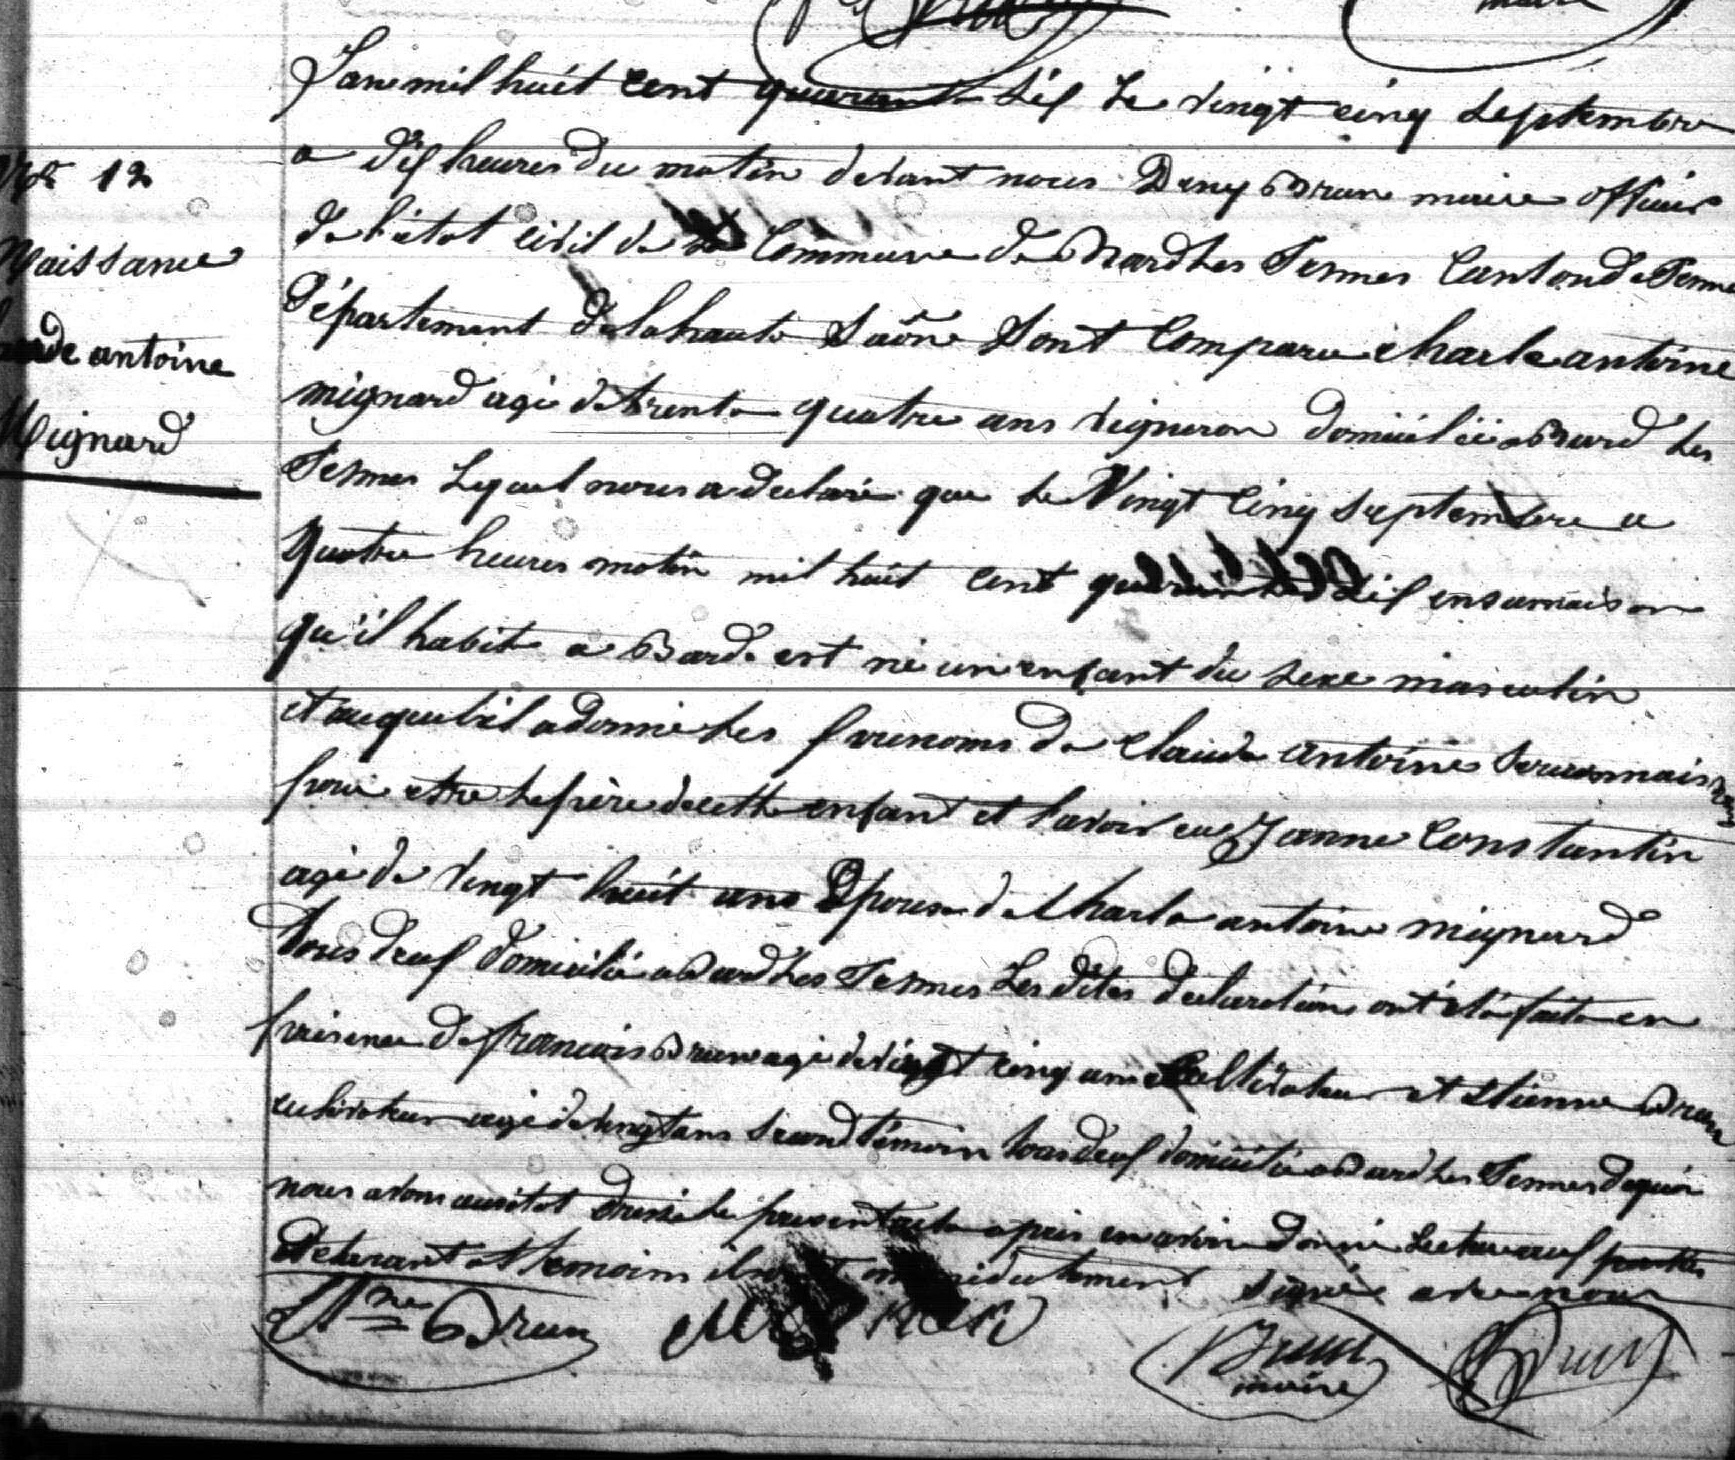 maire
N° 12
Naissance
Claude antoine
Mignard
L'an mil huit cent quarante six Le vingt cinq septembre
a dix heures du matin devant nous Deny Brun maire officier
de l'état civil de la Commune de Bard Les Pesmes Canton de Pesmes
Département de la haute Saône Sont Comparu charle antoine
mignard agé de trente quatre ans vigneron domicilié a Bard les
Pesmes Lequel nous a declaré que Le Vingt Cinq septembre a
quatre heures matin mil huit cent quarante six en sa maison
qu'il habite a Bard est né un enfant du sexe masculin
et auquel il a donné Les prenoms de Claude Antoine
pour etre Le père de cette enfant et l'avoir eu Janne Constantin
agé de vingt huit ans Epouse de Charle antoine mignard
tous deux domicilié a Bard Les Pesmes Les dites déclarations ont été faite en
présence de françois Brun agé de vingt cinq ans Cultivateur et Etienne Brun
cultivateur agé de vingt ans second témoin tous deux domicilié a Bard Les Pesmes de quoi
nous avons aussitot dressé Le present acte apres en avoir donné Lecture aux parties
Déclarant et temoins ils ont signé avec nous
Etne Brun
Brun
maire
Brun